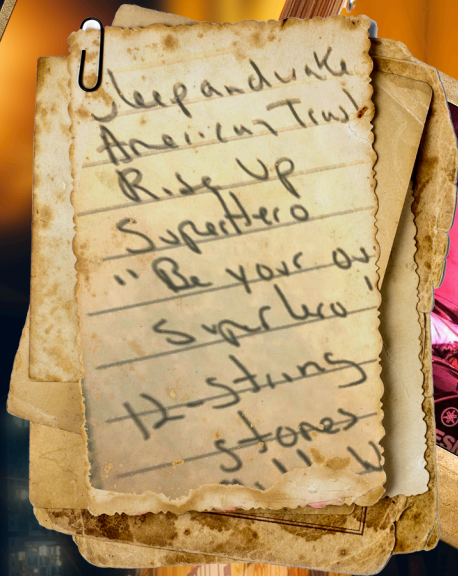 Sleepandwake
American Trust
Rise Up
SuperHero
"Be your ow
Superhero"
12-string
stores